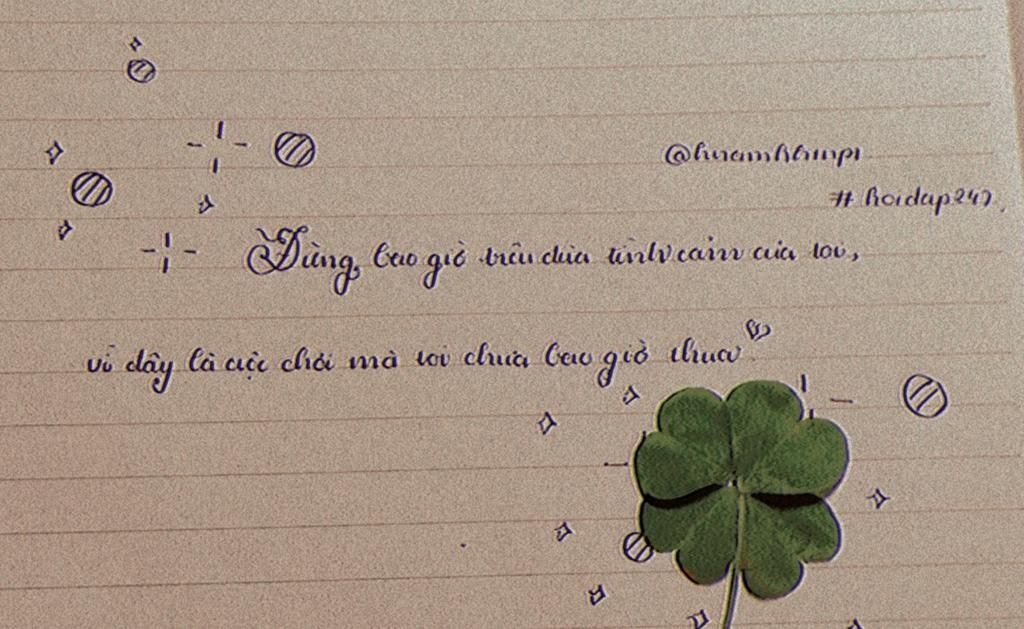 # hoidap247
Đừng bao giờ trêu đùa tình cảm của tôi,
vì đây là cuộc chơi mà tôi chưa bao giờ thua